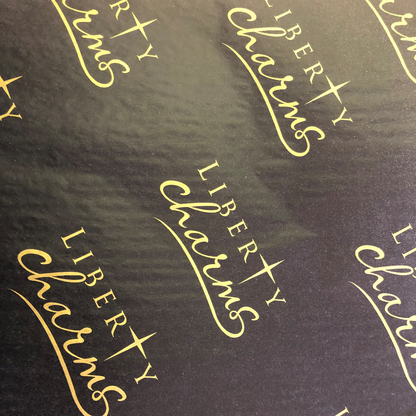 LIBERTY
charms
LIBERTY
charms
LIBERTY
charms
LIBERTY
charms
LI
charms